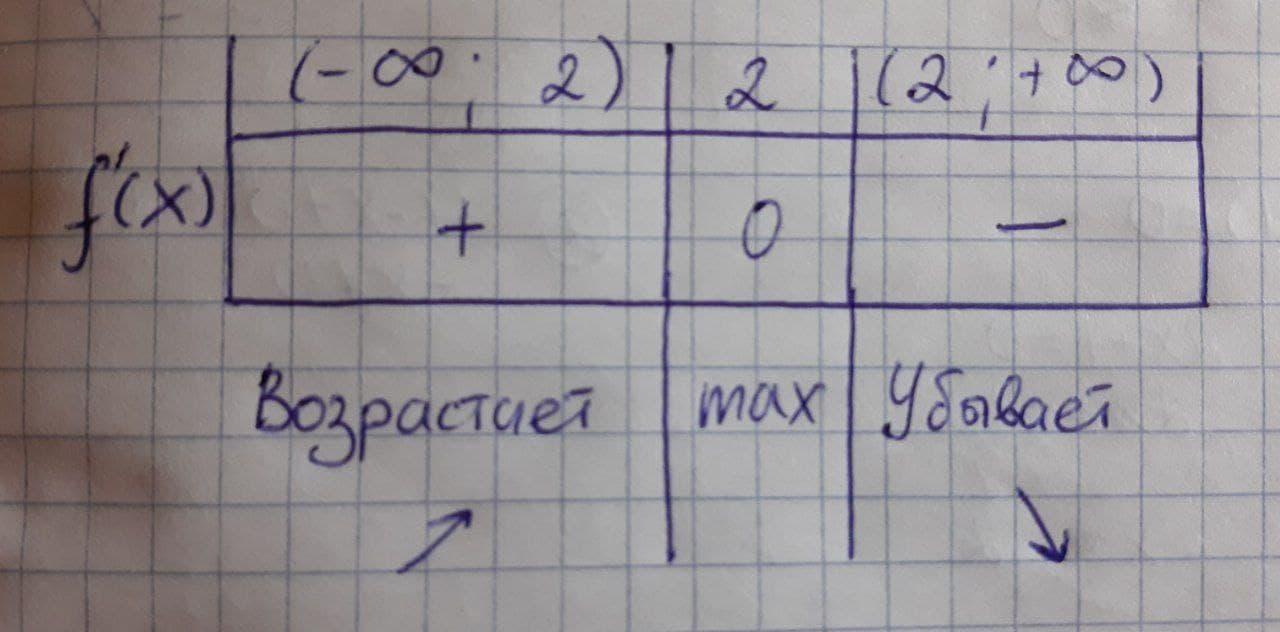 (-∞; 2) 2 (2; +∞)
f'(x) + 0 −
Возрастает max Убывает
↗ ↘